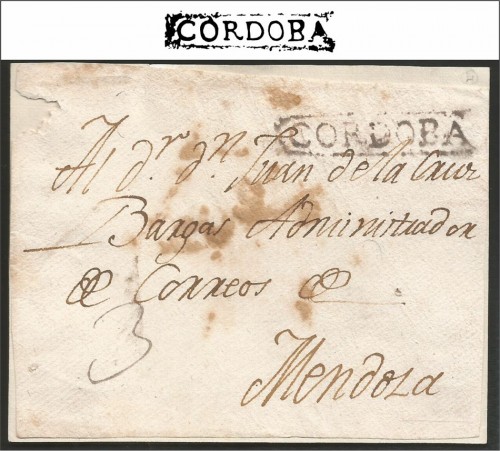 CORDOBA
CORDOBA
Al d.r d.n Juan de la Cruz
Bargas Administrador
de Correos &
3
Mendoza